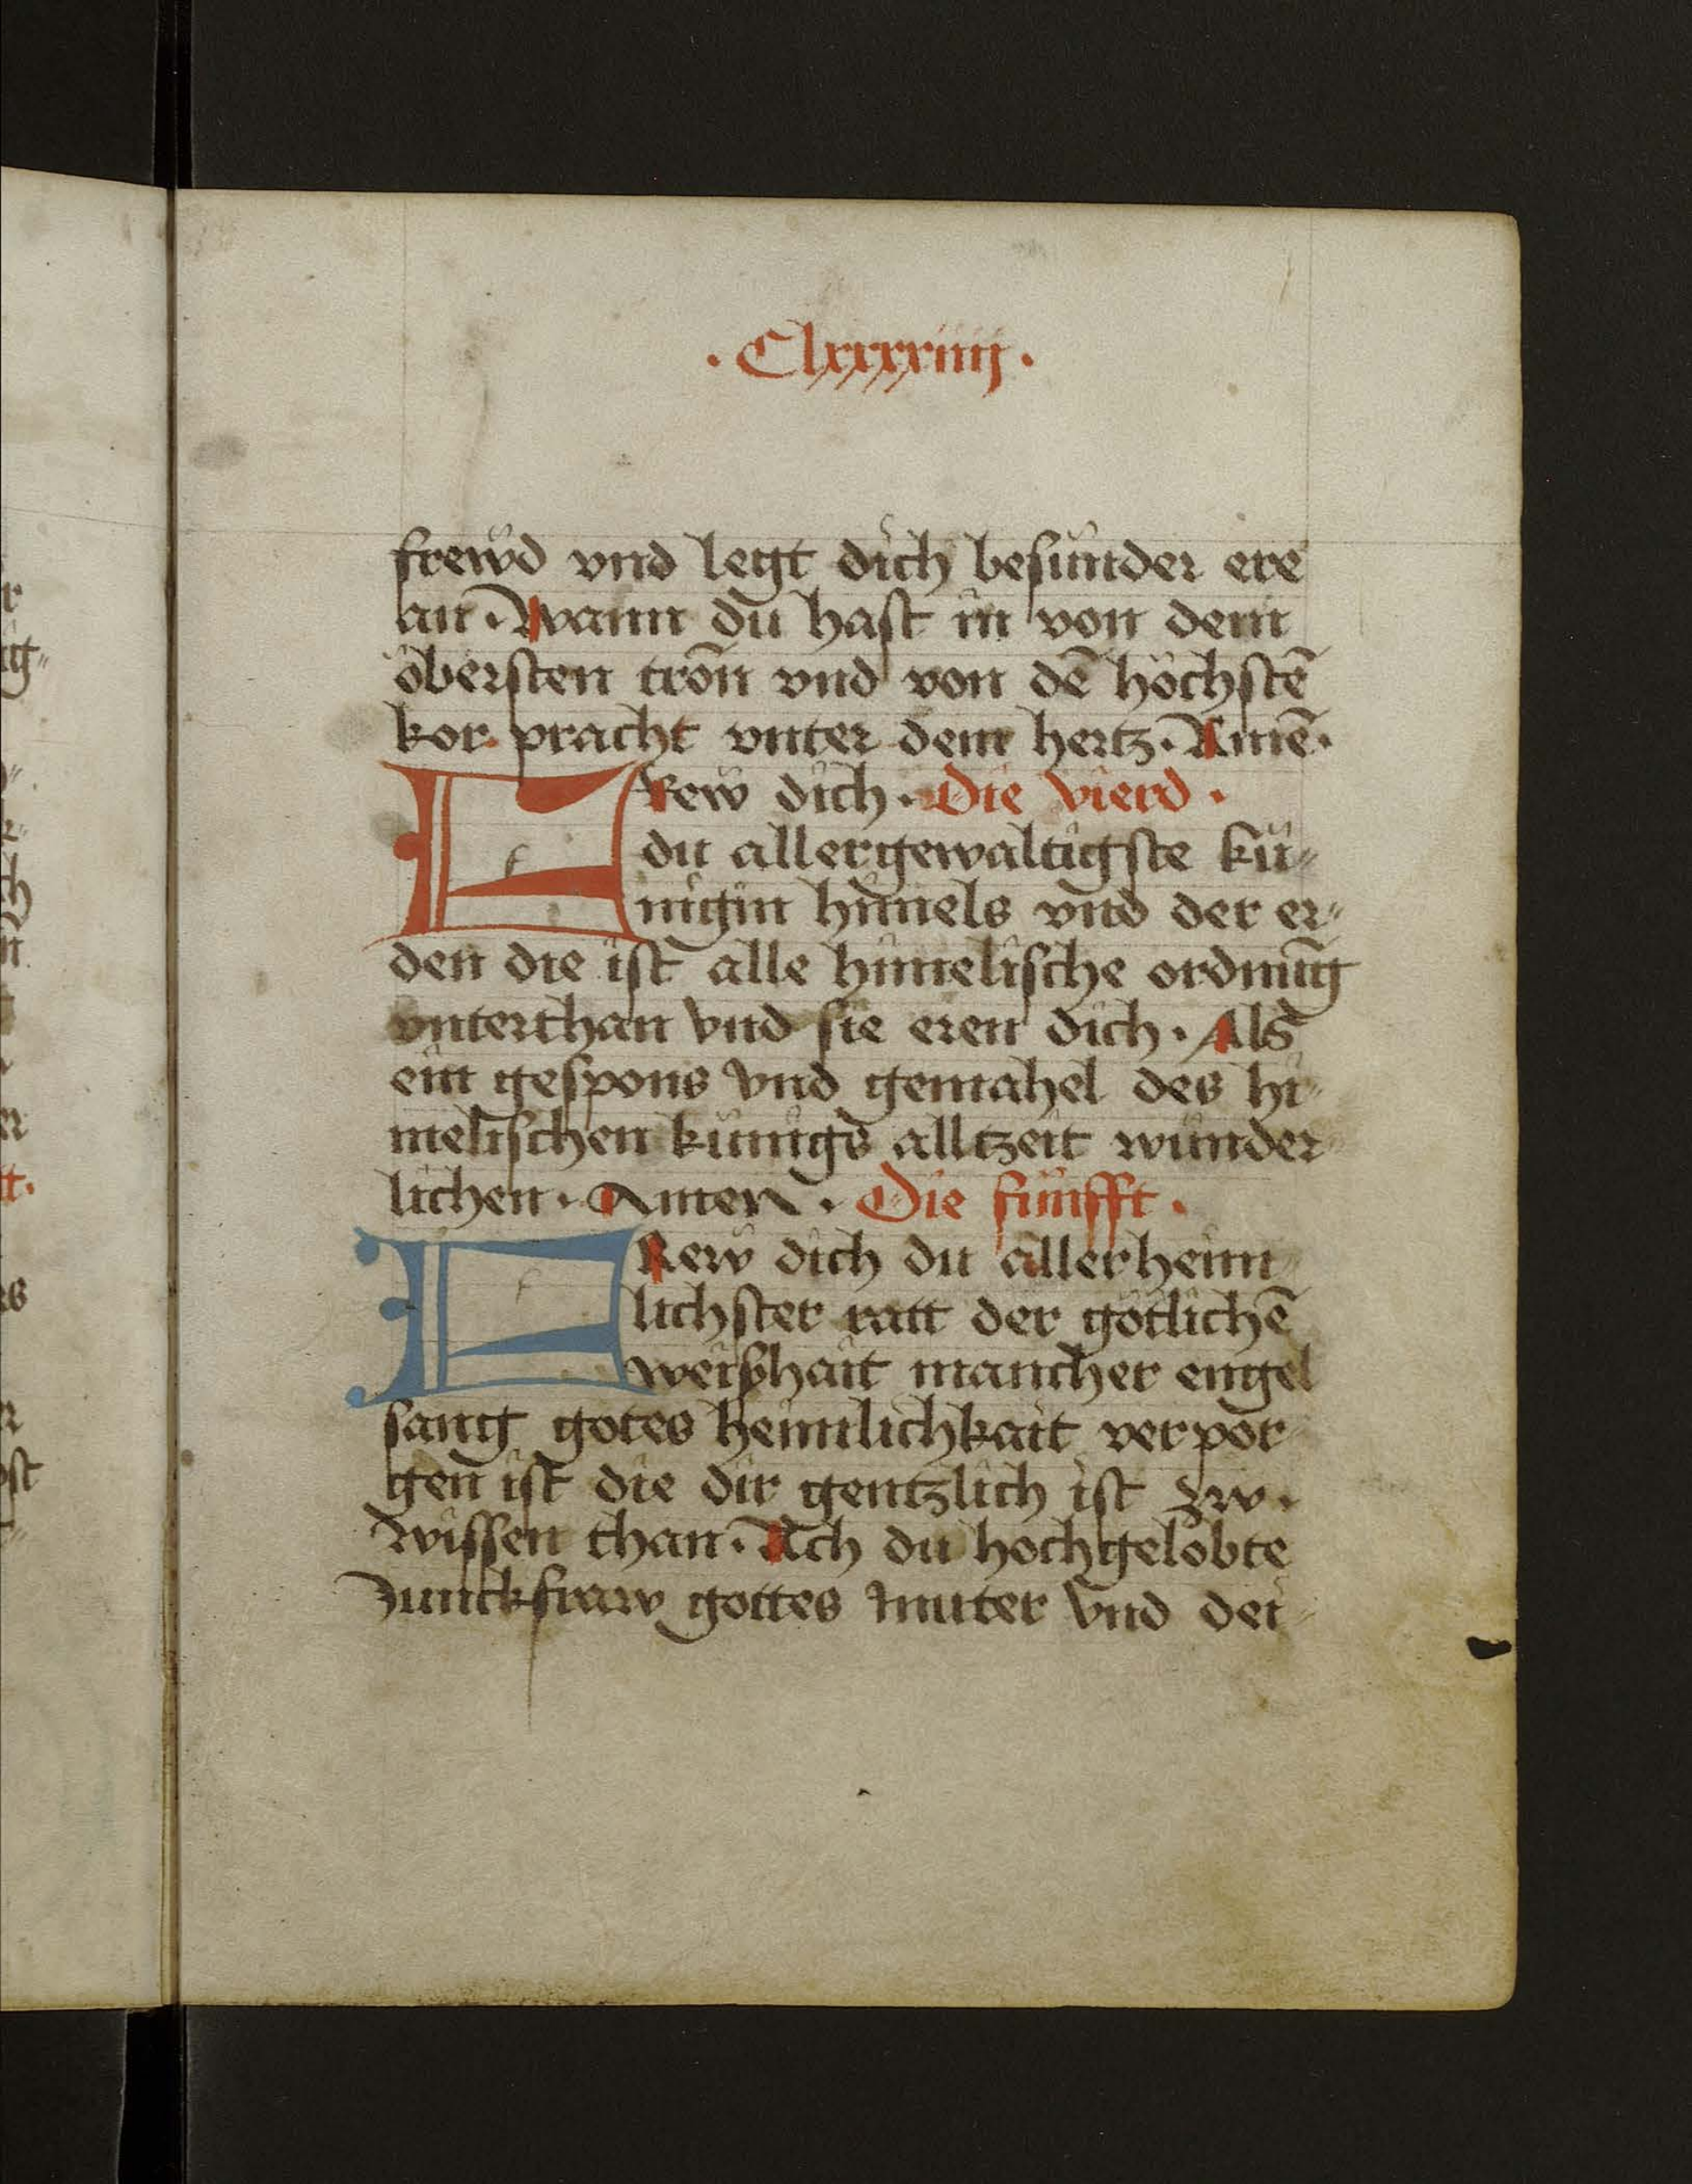 · Clxxxxiiij ·
frewd vnd legt dich besunder ere
an · Wann du hast in von dem
öbersten tron vnd von dē höchstē
kor pracht vnter dem hertz · Amē ·
FRew dich · Die vierd ·
du allergewaltigste kü⸗
nigin hīmels vnd der er⸗
den die ist alle himelische ordnūg
vnterthan vnd sie eren dich · Als
ein gespons vnd gemahel des hi⸗
melischen künigs alltzeit wunder
lichen · Amen · Die fünfft ·
FRew dich du allerheim
lichster ratt der götlichē
weißhait mancher engel
sang gotes heimlichkait verpor
gen ist die dir gentzlich ist zw ·
wissen than · Ach du hochgelobte
Junckfraw gottes muter vnd dei⸗